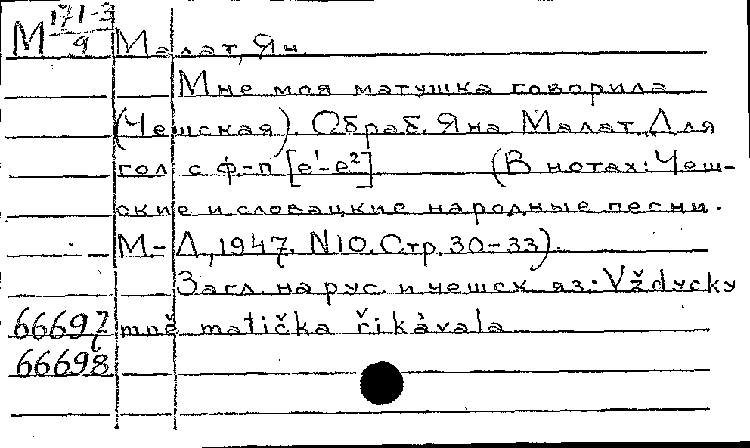 М 171-3/9 Малат, Ян
Мне моя матушка говорила
(Чешская). Обраб. Яна Малат. Для
гол с ф-п [e¹-e²] (В нотах: Чеш-
ские и словацкие народные песни.
М.-Л., 1947. N10. Стр. 30-33).
Загл. на рус. и чешск яз: Vždycky
66697 mně matička řikávala
66698